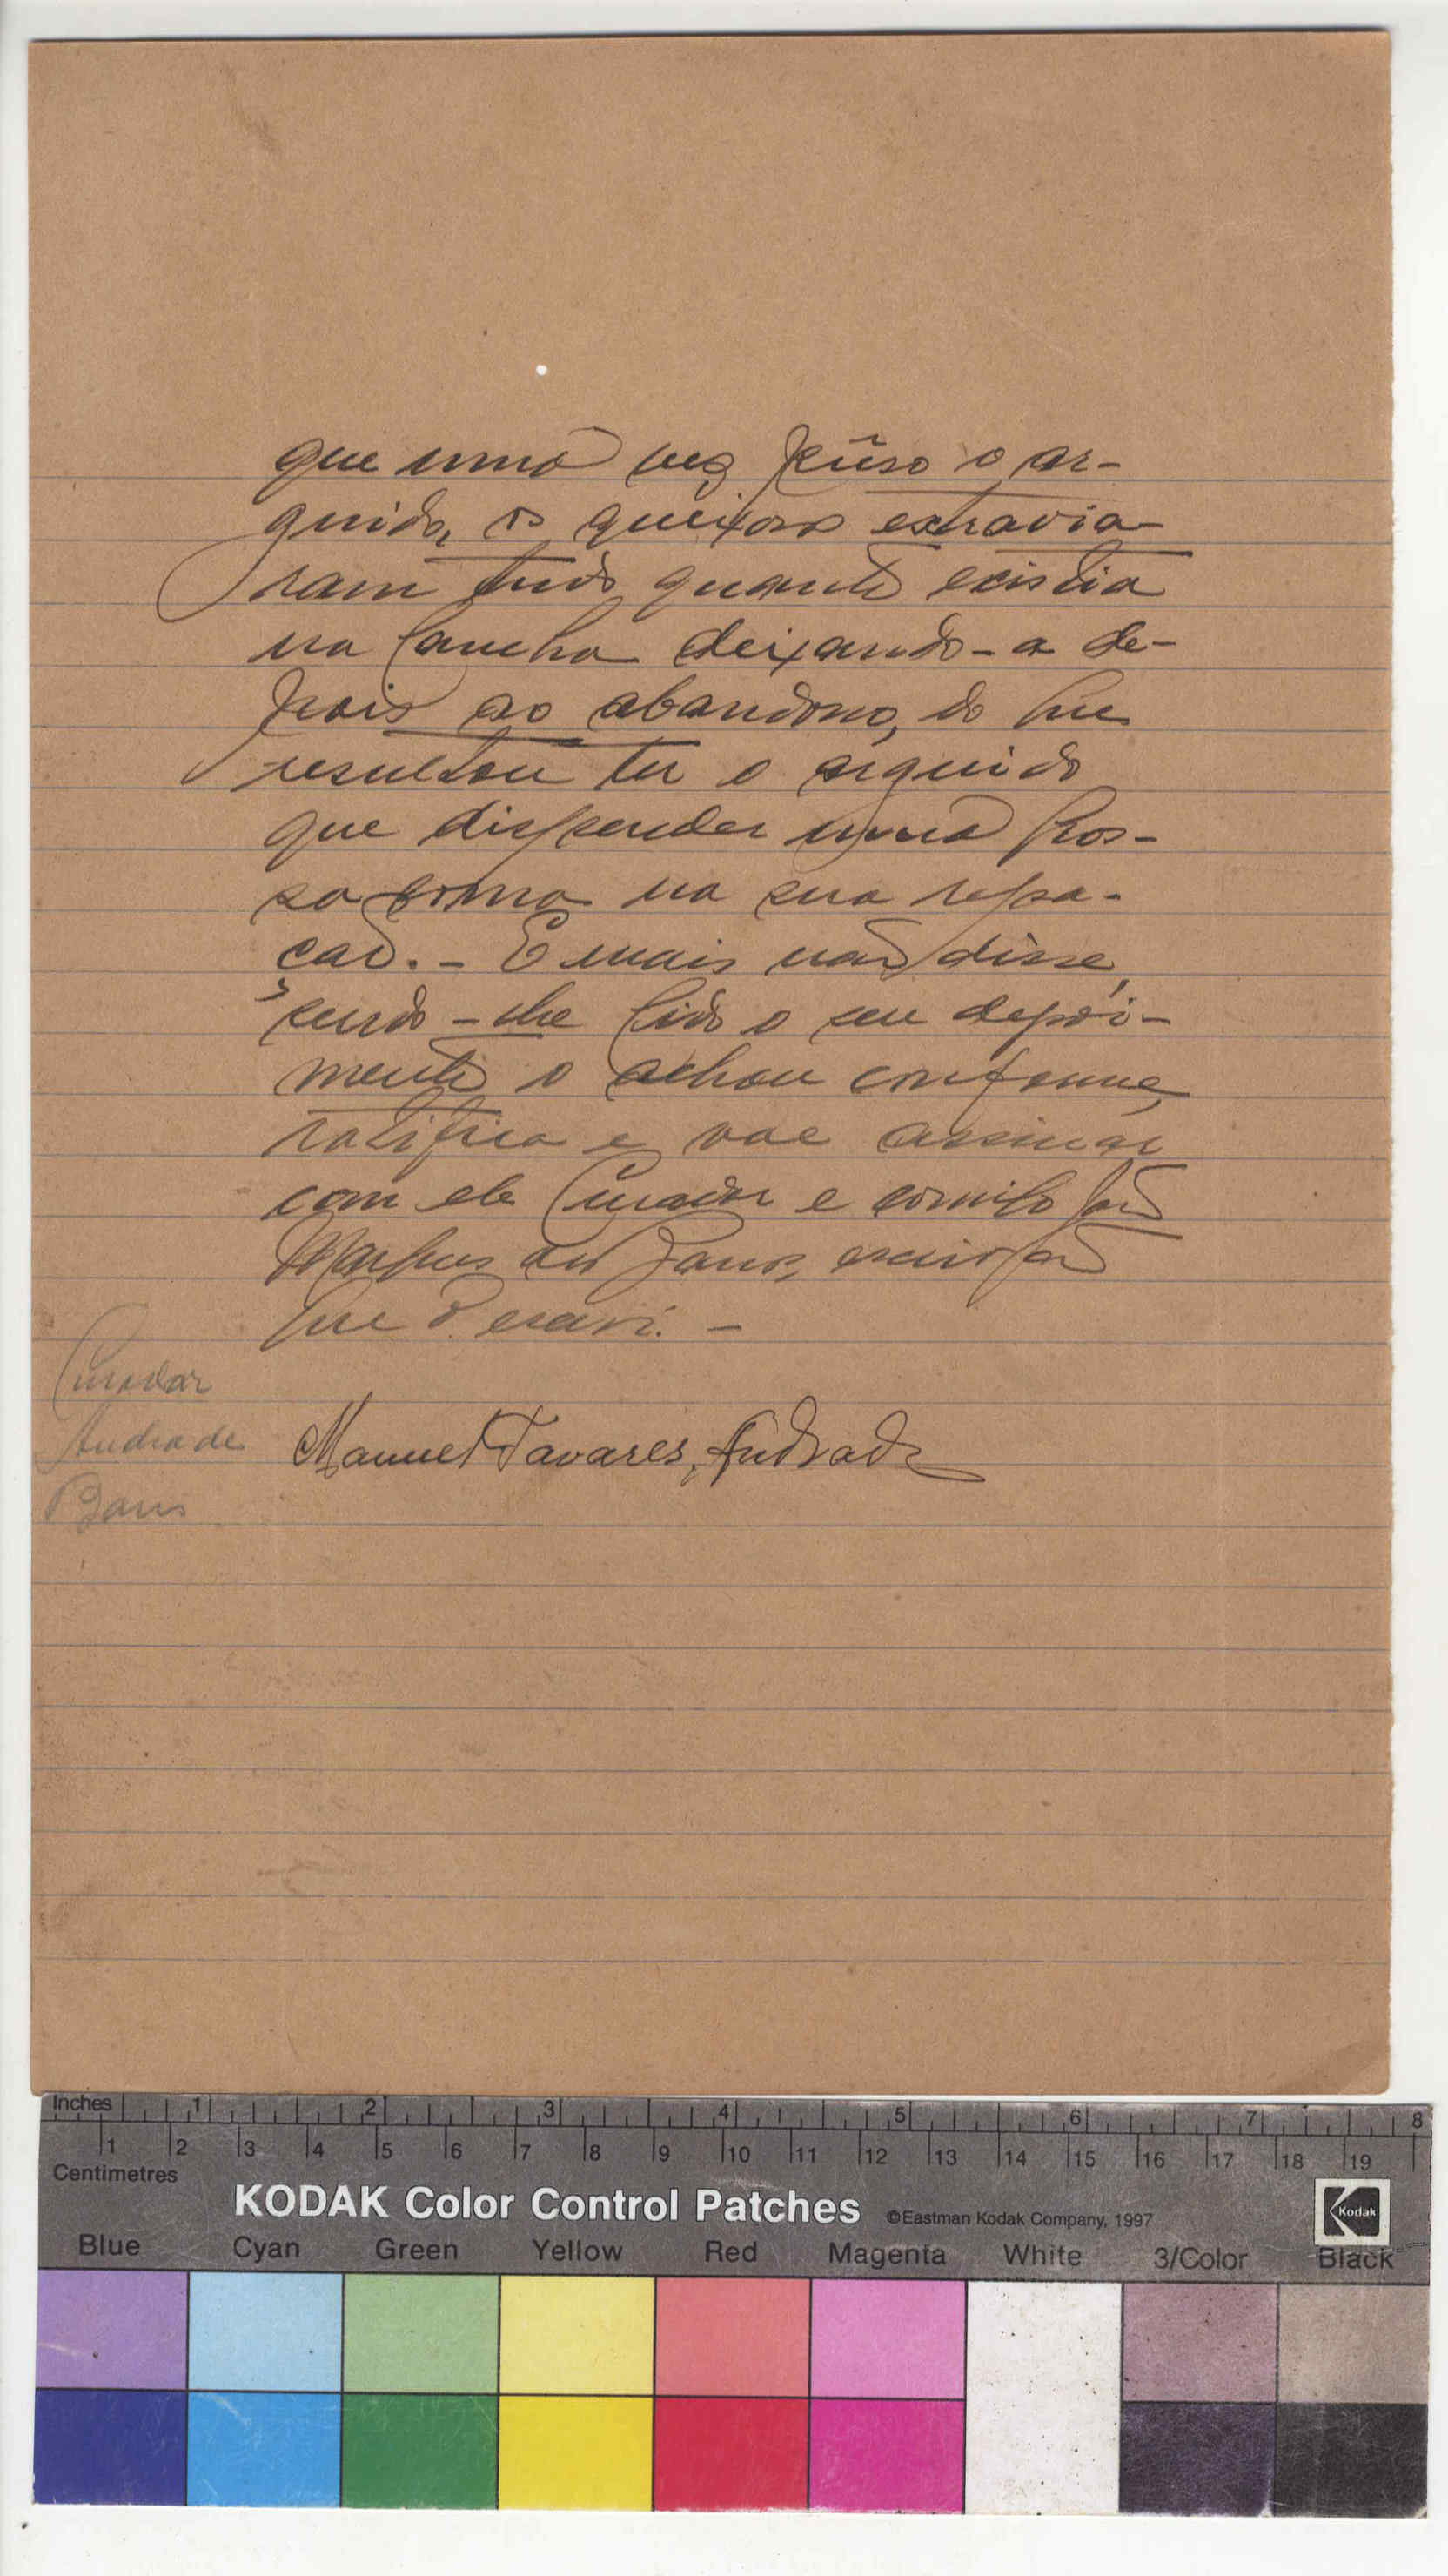 que uma vez prêso o ar-
guido, os queixosos extravia-
ram tudo quanto existia
na lancha deixando-a de-
pois ao abandono, do que
resultou ter o arguido
que dispender uma gros-
sa soma na sua repa-
ração. - E mais não disse,
sendo-lhe lido o seu depoi-
mento o achou conforme,
ratifica e vae assinar
com ele Curador e comigo João
Marques dos, escrivão
que o escrevi. -
Curador
Andrade
Manuel Tavares, Andrade
Inches 1 2 3 4 5 6 7 8
1 2 3 4 5 6 7 8 9 10 11 12 13 14 15 16 17 18 19
Centimetres
KODAK Color Control Patches ©Eastman Kodak Company, 1997 Kodak
Blue Cyan Green Yellow Red Magenta White 3/Color Black